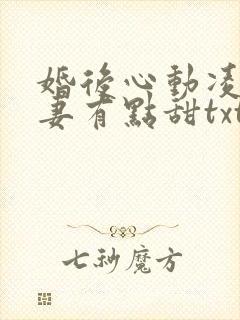 婚後心動凌
妻有點甜txt
七秒魔方